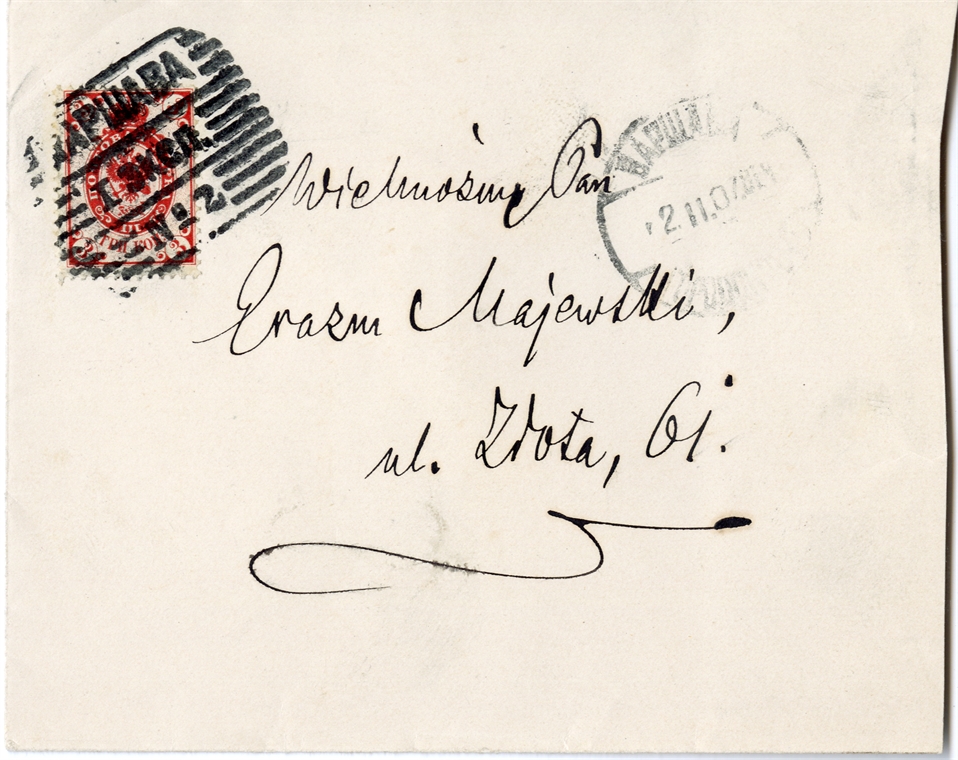 ВАРШАВА
I ЭКСП.
№ 2
ТРИ КОП
3
3
ВАРШАВА
2.11.07
Wielmożny Pan
Erazm Majewski,
ul. Złota, 61.